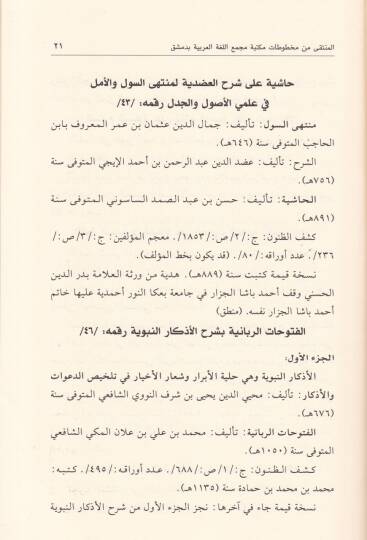 المنتقى من مخطوطات مكتبة مجمع اللغة العربية بدمشق ٢١
حاشية على شرح العضدية لمنتهى السول والأمل
في علمي الأصول والجدل رقمه: /٤٣/
منتهى السول: تأليف: جمال الدين عثمان بن عمر المعروف بابن
الحاجب المتوفى سنة (٦٤٦هـ).
الشرح: تأليف: عضد الدين عبد الرحمن بن أحمد الإيجي المتوفى سنة
(٧٥٦هـ).
الحاشية: تأليف: حسن بن عبد الصمد الساسوني المتوفى سنة
(٨٩١هـ).
كشف الظنون: ج:/٢/ ص:/١٨٥٣/. معجم المؤلفين: ج:/٣/ص:/
٢٣٦/. عدد أوراقه: /٨٠/. (قد يكون بخط المؤلف).
نسخة قيمة كتبت سنة (٨٨٩هـ). هدية من ورثة العلامة بدر الدين
الحسني وقف أحمد باشا الجزار في جامعة بعكا النور أحمدية عليها خاتم
أحمد باشا الجزار نفسه. (منطق)
الفتوحات الربانية بشرح الأذكار النبوية رقمه: /٤٦/
الجزء الأول:
الأذكار النبوية وهي حلية الأبرار وشعار الأخيار في تلخيص الدعوات
والأذكار: تأليف: محيي الدين يحيى بن شرف النووي الشافعي المتوفى سنة
(٦٧٦هـ).
الفتوحات الربانية: تأليف: محمد بن علي بن علان المكي الشافعي
المتوفى سنة (١٠٥٠هـ).
كشف الظنون: ج:/١/ص:/٦٨٨/. عدد أوراقه:/٤٩٥/. كتبه:
محمد بن محمد بن حمادة سنة (١١٣٥هـ).
نسخة قيمة جاء في آخرها: نجز الجزء الأول من شرح الأذكار النبوية